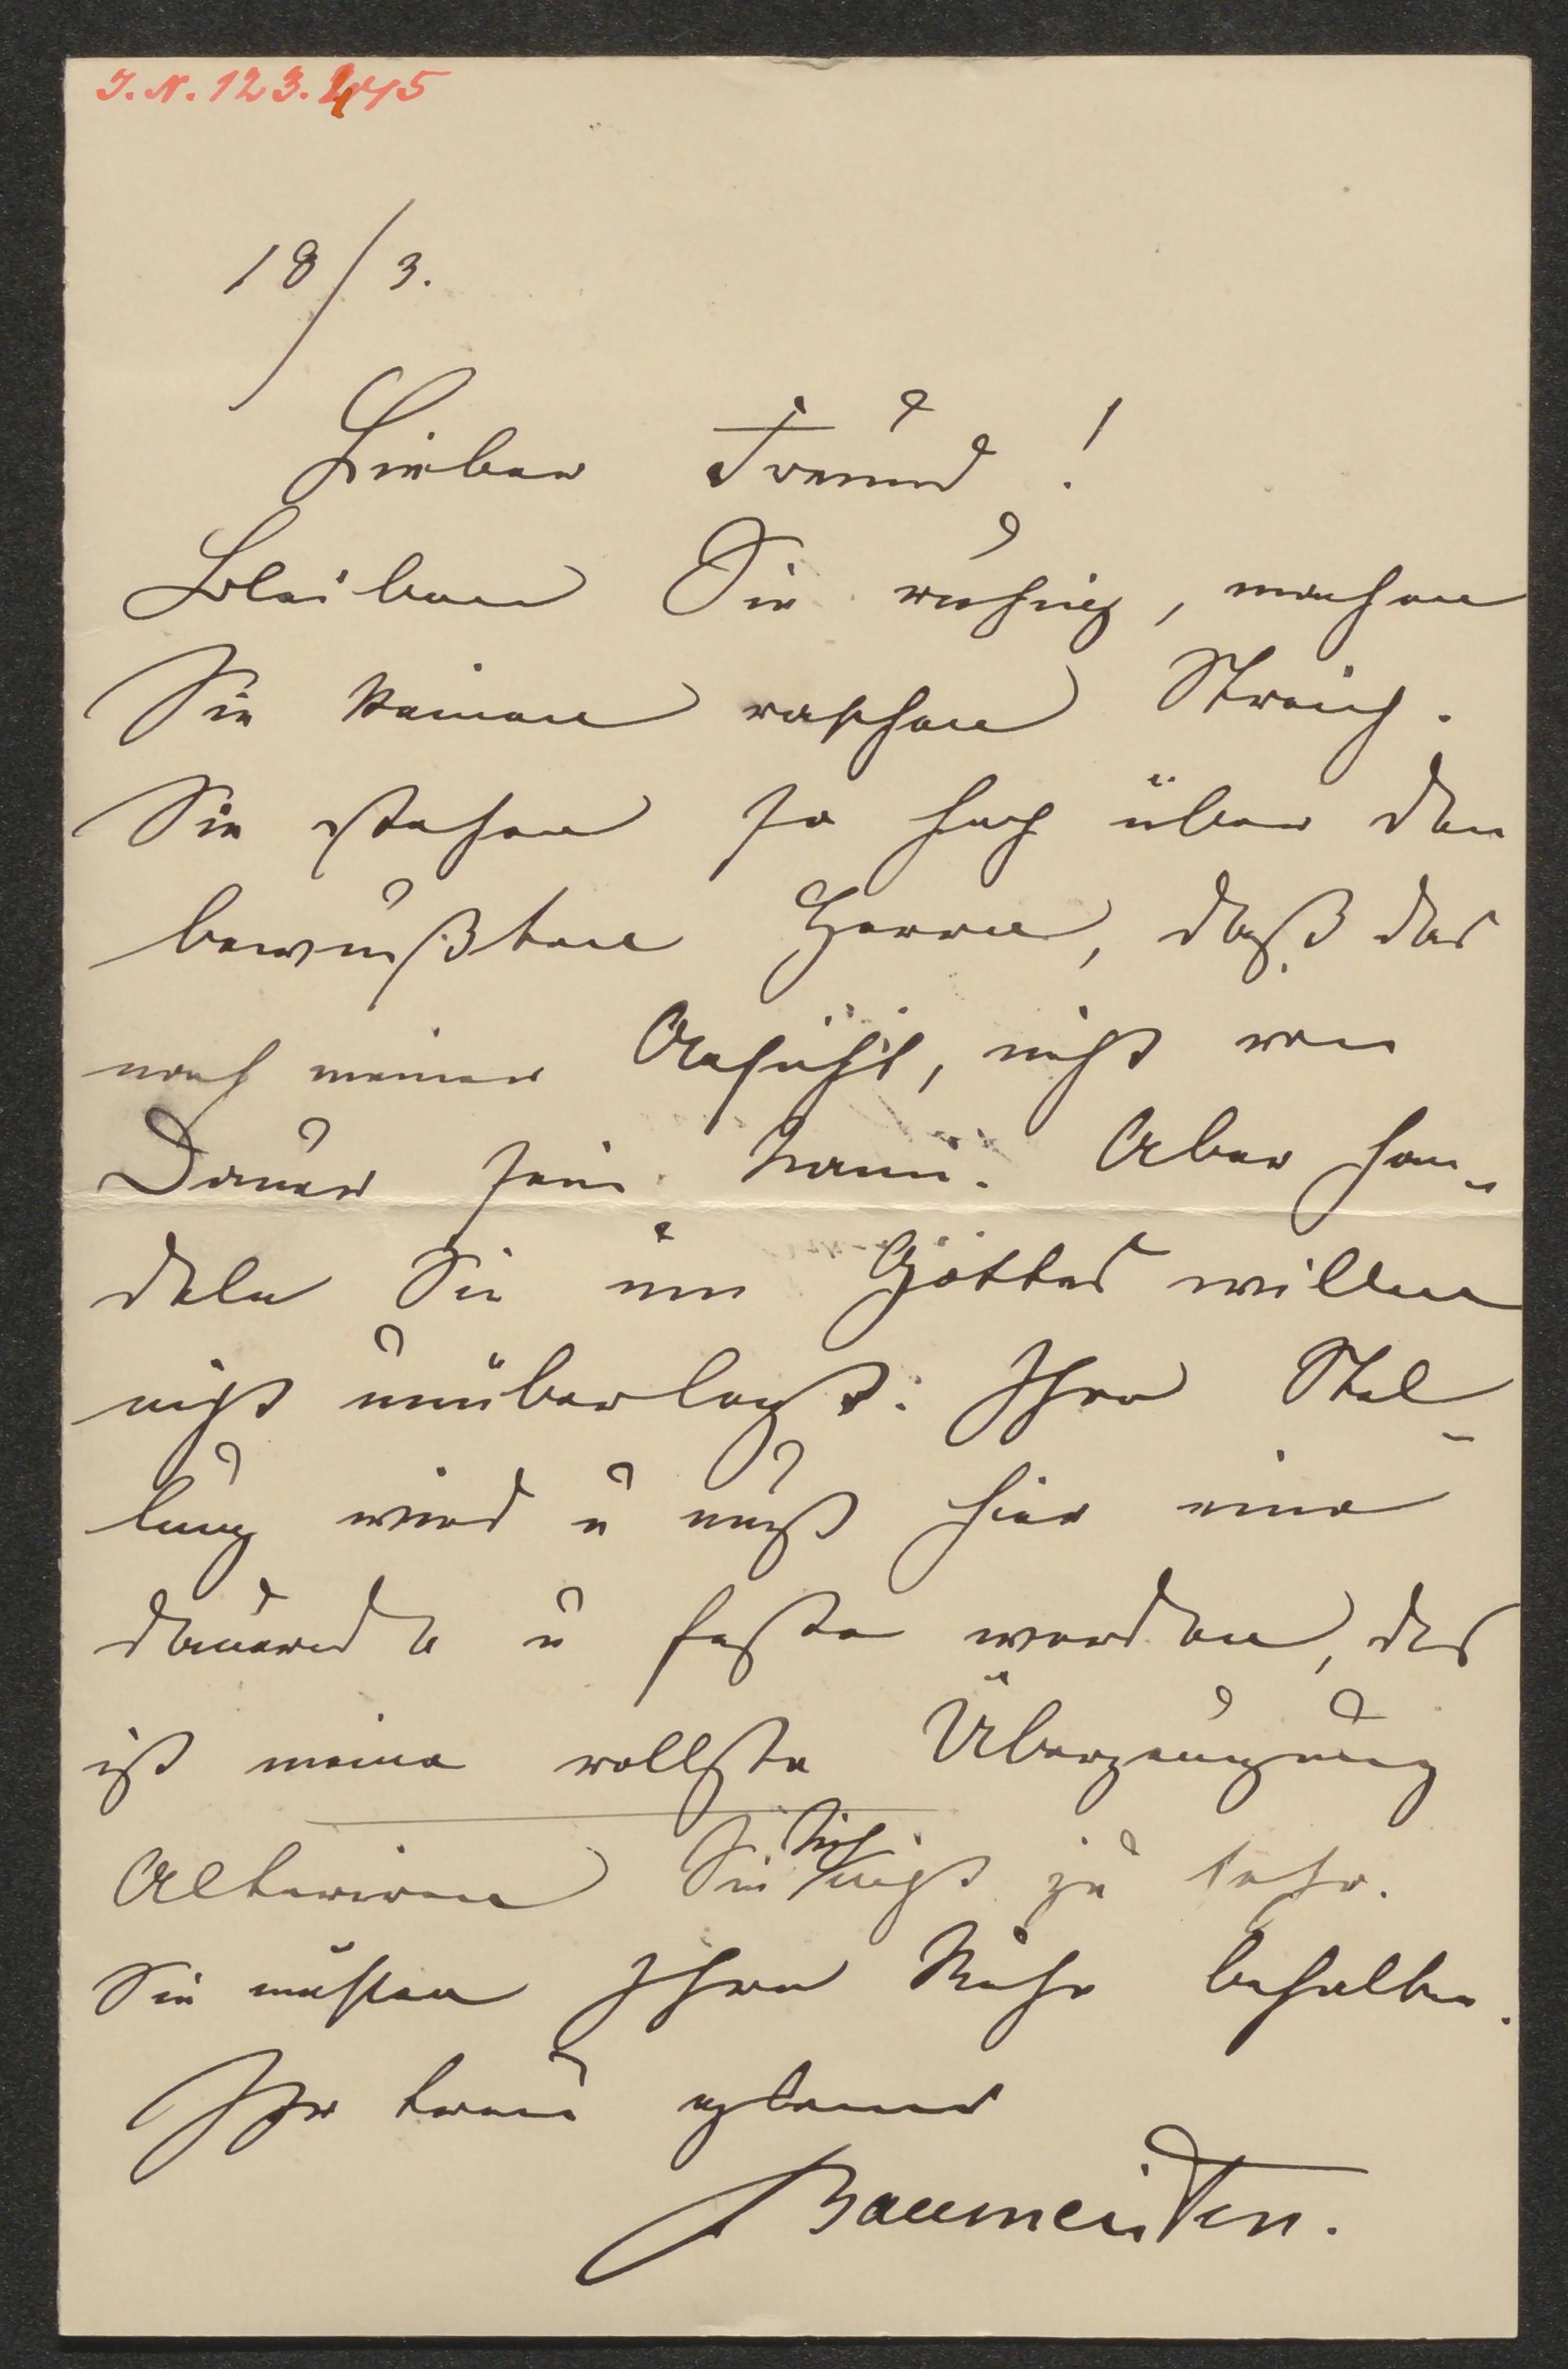 I.N. 123.445
18/3.
Lieber Freund!
Bleiben Sie ruhig, machen
Sie keinen raschen Streich.
Sie stehen so hoch über dem
bewußten Herrn, daß das
nach meiner Ansicht, nicht von
Dauer sein kann. Aber han-
deln Sie um Gottes willen
nicht unüberlegt. Ihre Stel-
lung wird u muß hier eine
dauernde u feste werden, das
ist meine vollste Überzeugung
Alteriren Sie sich nicht zu sehr.
Sie müssen Ihre Ruhe behalten.
Ihr treu ergebener
Baumeister.